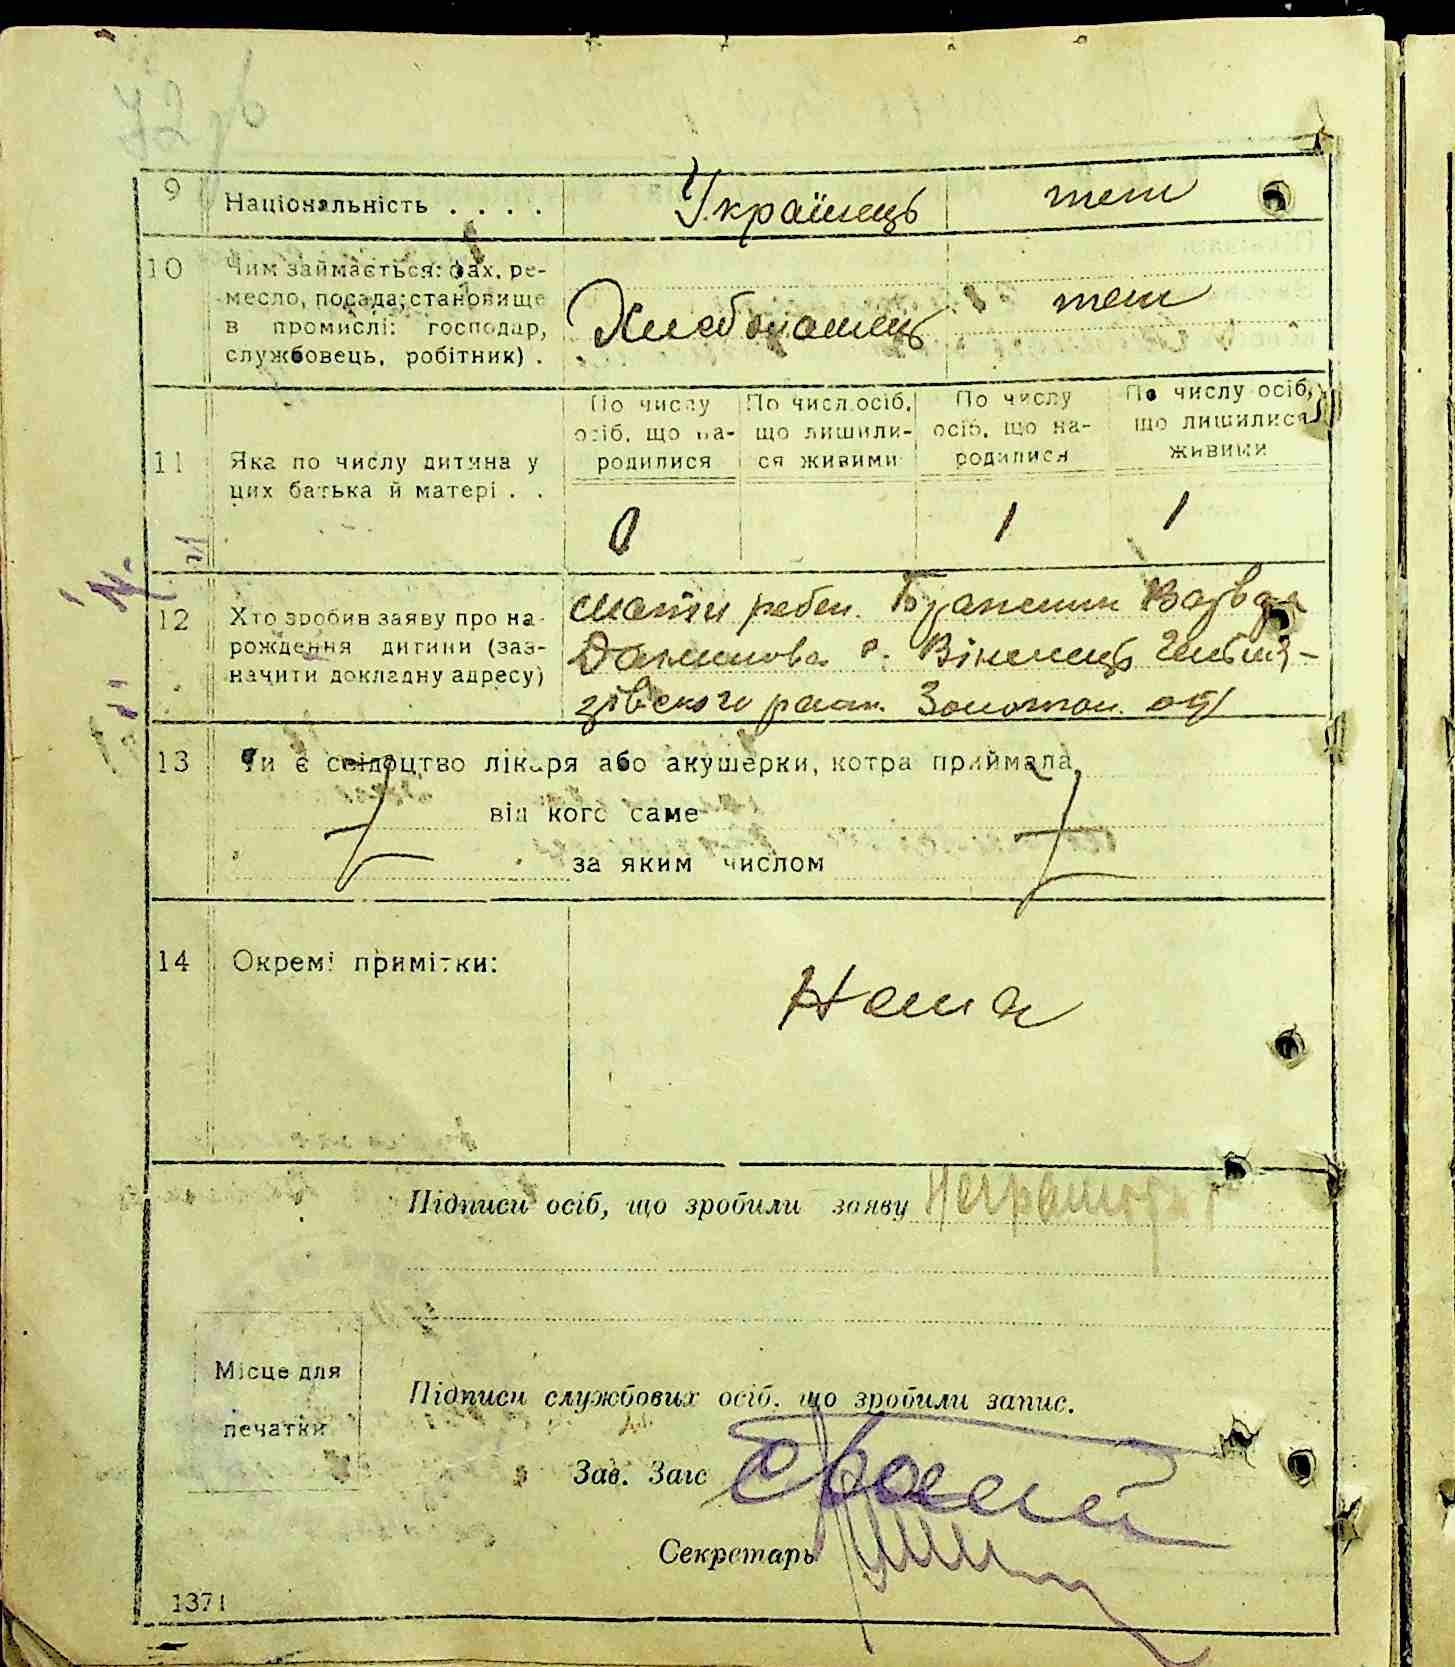 72
9 Національність . . . . Українець теш
10 Чим займається: фах, ре-
месло, посада; становище
в промислі: господар,
службовець, робітник) .
Хлебопашець теш
По числу осіб, що на-родилися По числ.осіб, що лишили-ся живими По числу осіб, що на-родилися По числу осіб, що лишилися живими
11 Яка по числу дитина у
цих батька й матері . .
0 1 1
12 Хто зробив заяву про на-
рождення дитини (заз-
начити докладну адресу)
мати ребен.
Вінинець
зівского раон. Золотон. окр
13 Чи є свідоцтво лікаря або акушерки, котра приймала
від кого саме
за яким числом
14 Окремі примітки:
Нема
Підписи осіб, що зробили заяву Неграмотна
Місце для
печатки
Підписи службових осіб, що зробили запис.
Зав. Загс
Секретарь
1371